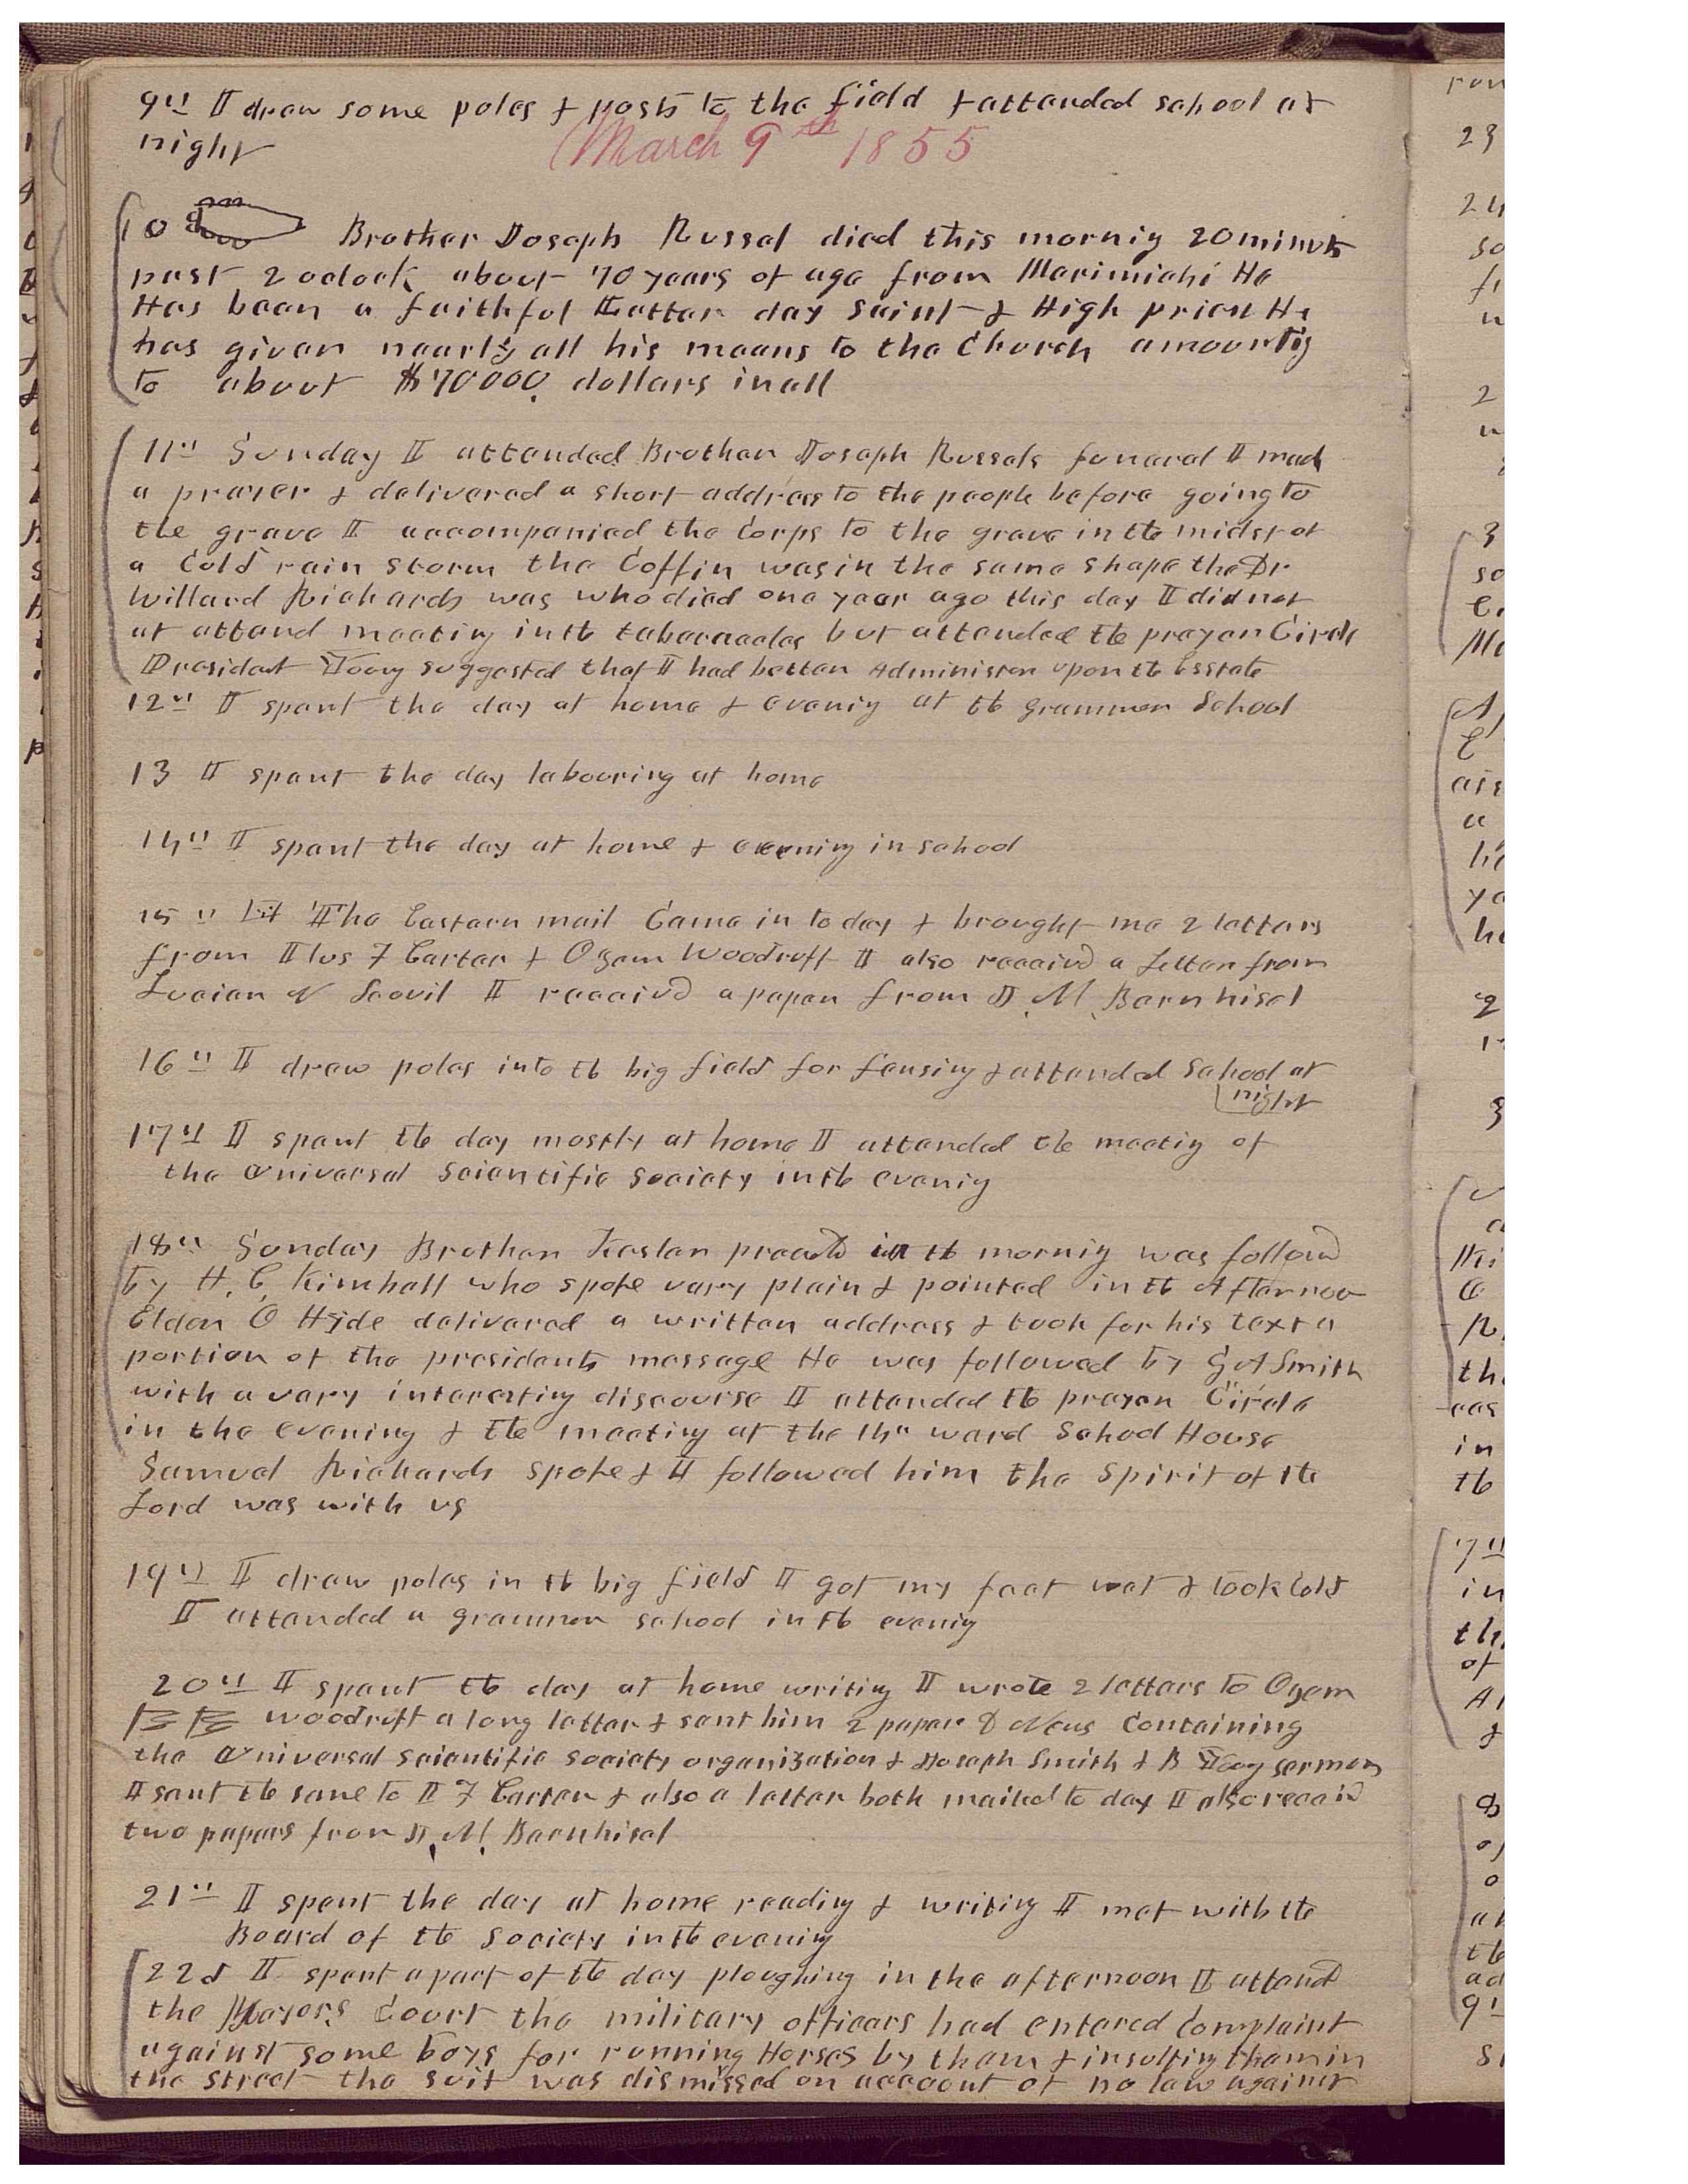 9th I drew some poles & posts to the field & attended school at
night
March 9th 1855
10th Brother Joseph Russel died this morniy 20 minuts
past 2 oclock about 70 years of age from Marimichi He
Has been a faithful Latter day Saint & High priest He
has given nearly all his means to the Church amountig
to about $70000. dollars in all
11th Sunday I attended Brother Joseph Russels funeral I mad
a prayer & delivered a short address to the people before going to
the grave I accompanied the Corps to the grave in the midst of
a Cold rain storm the Coffin was in the same shape the Dr
Willard Richards was who died one year ago this day I did not
at attend meeting in the tabernacles but attended the prayer Circle
President Young suggested that I had better Administer upon the Esstate
12th I spent the day at home & evenig at the grammer School
13 I spent the day labouring at home
14th I spent the day at home & evening in school
15th The Eastern mail Came in to day & brought me 2 letters
from Ilus F Carter & Ozem Woodruff I also receivd a Letter from
Lucian N Scovil I receivd a paper from J. M. Barnhisel
16th I drew poles into the big field for fensing & attended School at
night
17th I spent the day mostly at home I attended the meetig of
the Universal Scientific Society in the evenig
18th Sunday Brother Kesler preachd in the mornig was followd
by H. C. Kimball who spoke very plain & pointed in the Afternoo
Elder O Hyde delivered a written address & took for his text a
portion of the presidents message He was followed by G A Smith
with a very interesting discourse I attended the prayer Circle
in the evening & the meeting at the 14th ward School House
Samuel Richards spoke & I followed him the spirit of the
Lord was with us
19th I drew poles in the big field I got my feet wet & took Cold
I attended a grammer school in the evenig
20th I spent the day at home writing I wrote 2 letters to Ozem
Woodruff a long letter & sent him 2 papers D News Containing
the Universal scientific society organization & Joseph Smith & B Young sermons
I sent the same to I F Carter & also a letter both mailed to day I also receivd
two papers from J. M. Barnhisel
21st I spent the day at home reading & writing I met with the
Board of the Society in the evening
22d I spent a part of the day ploughing in the afternoon I attend
the Mayors Court the military officers had entered Complaint
against some boys for running Horses by them & insulting them in
the street the suit was dismissed on account of no law against